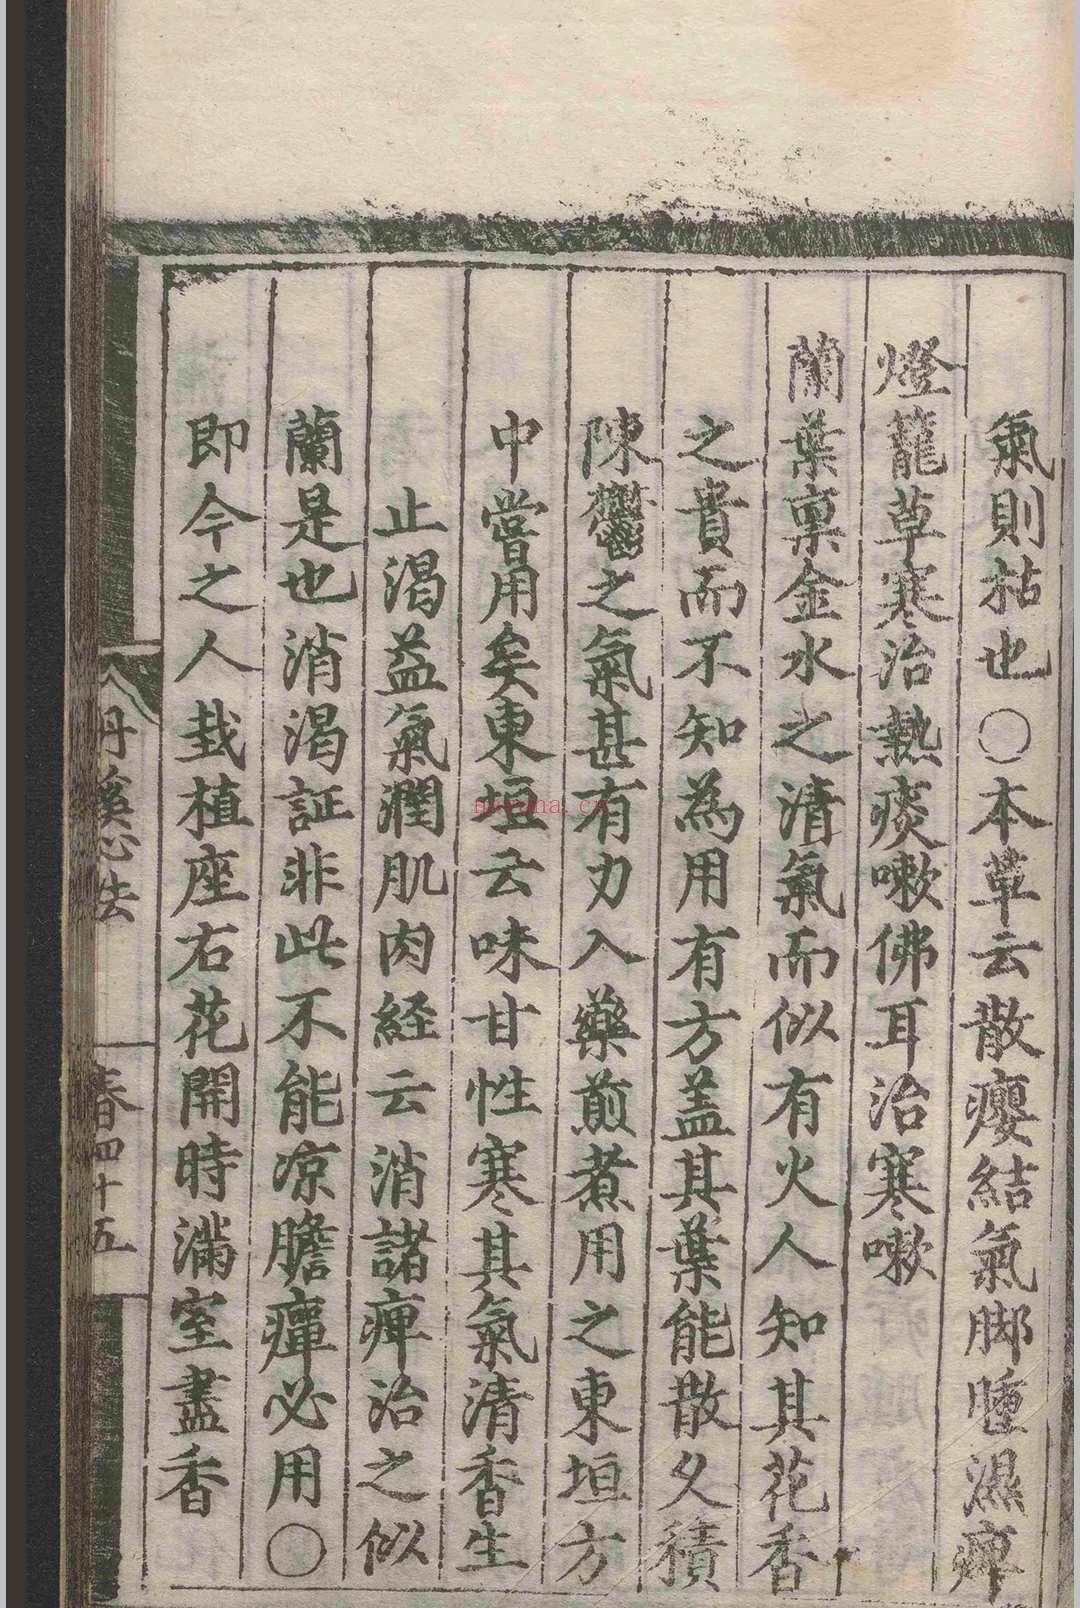 氣則枯也○本草云散癭結氣脚腫濕痺
燈籠草寒治熱痰嗽佛耳治寒嗽
蘭葉稟金水之清氣而似有火人知其花香
之貴而不知為用有方盖其葉能散久積
陳鬱之氣甚有力入藥煎煮用之東垣方
中嘗用矣東垣云味甘性寒其氣清香生
止渴益氣潤肌肉経云消諸痺治之似
蘭是也消渴証非此不能凉膽癉必用○
即今之人栽植座右花開時滿室盡香
丹溪心法
春四十五
nnyuna.cn